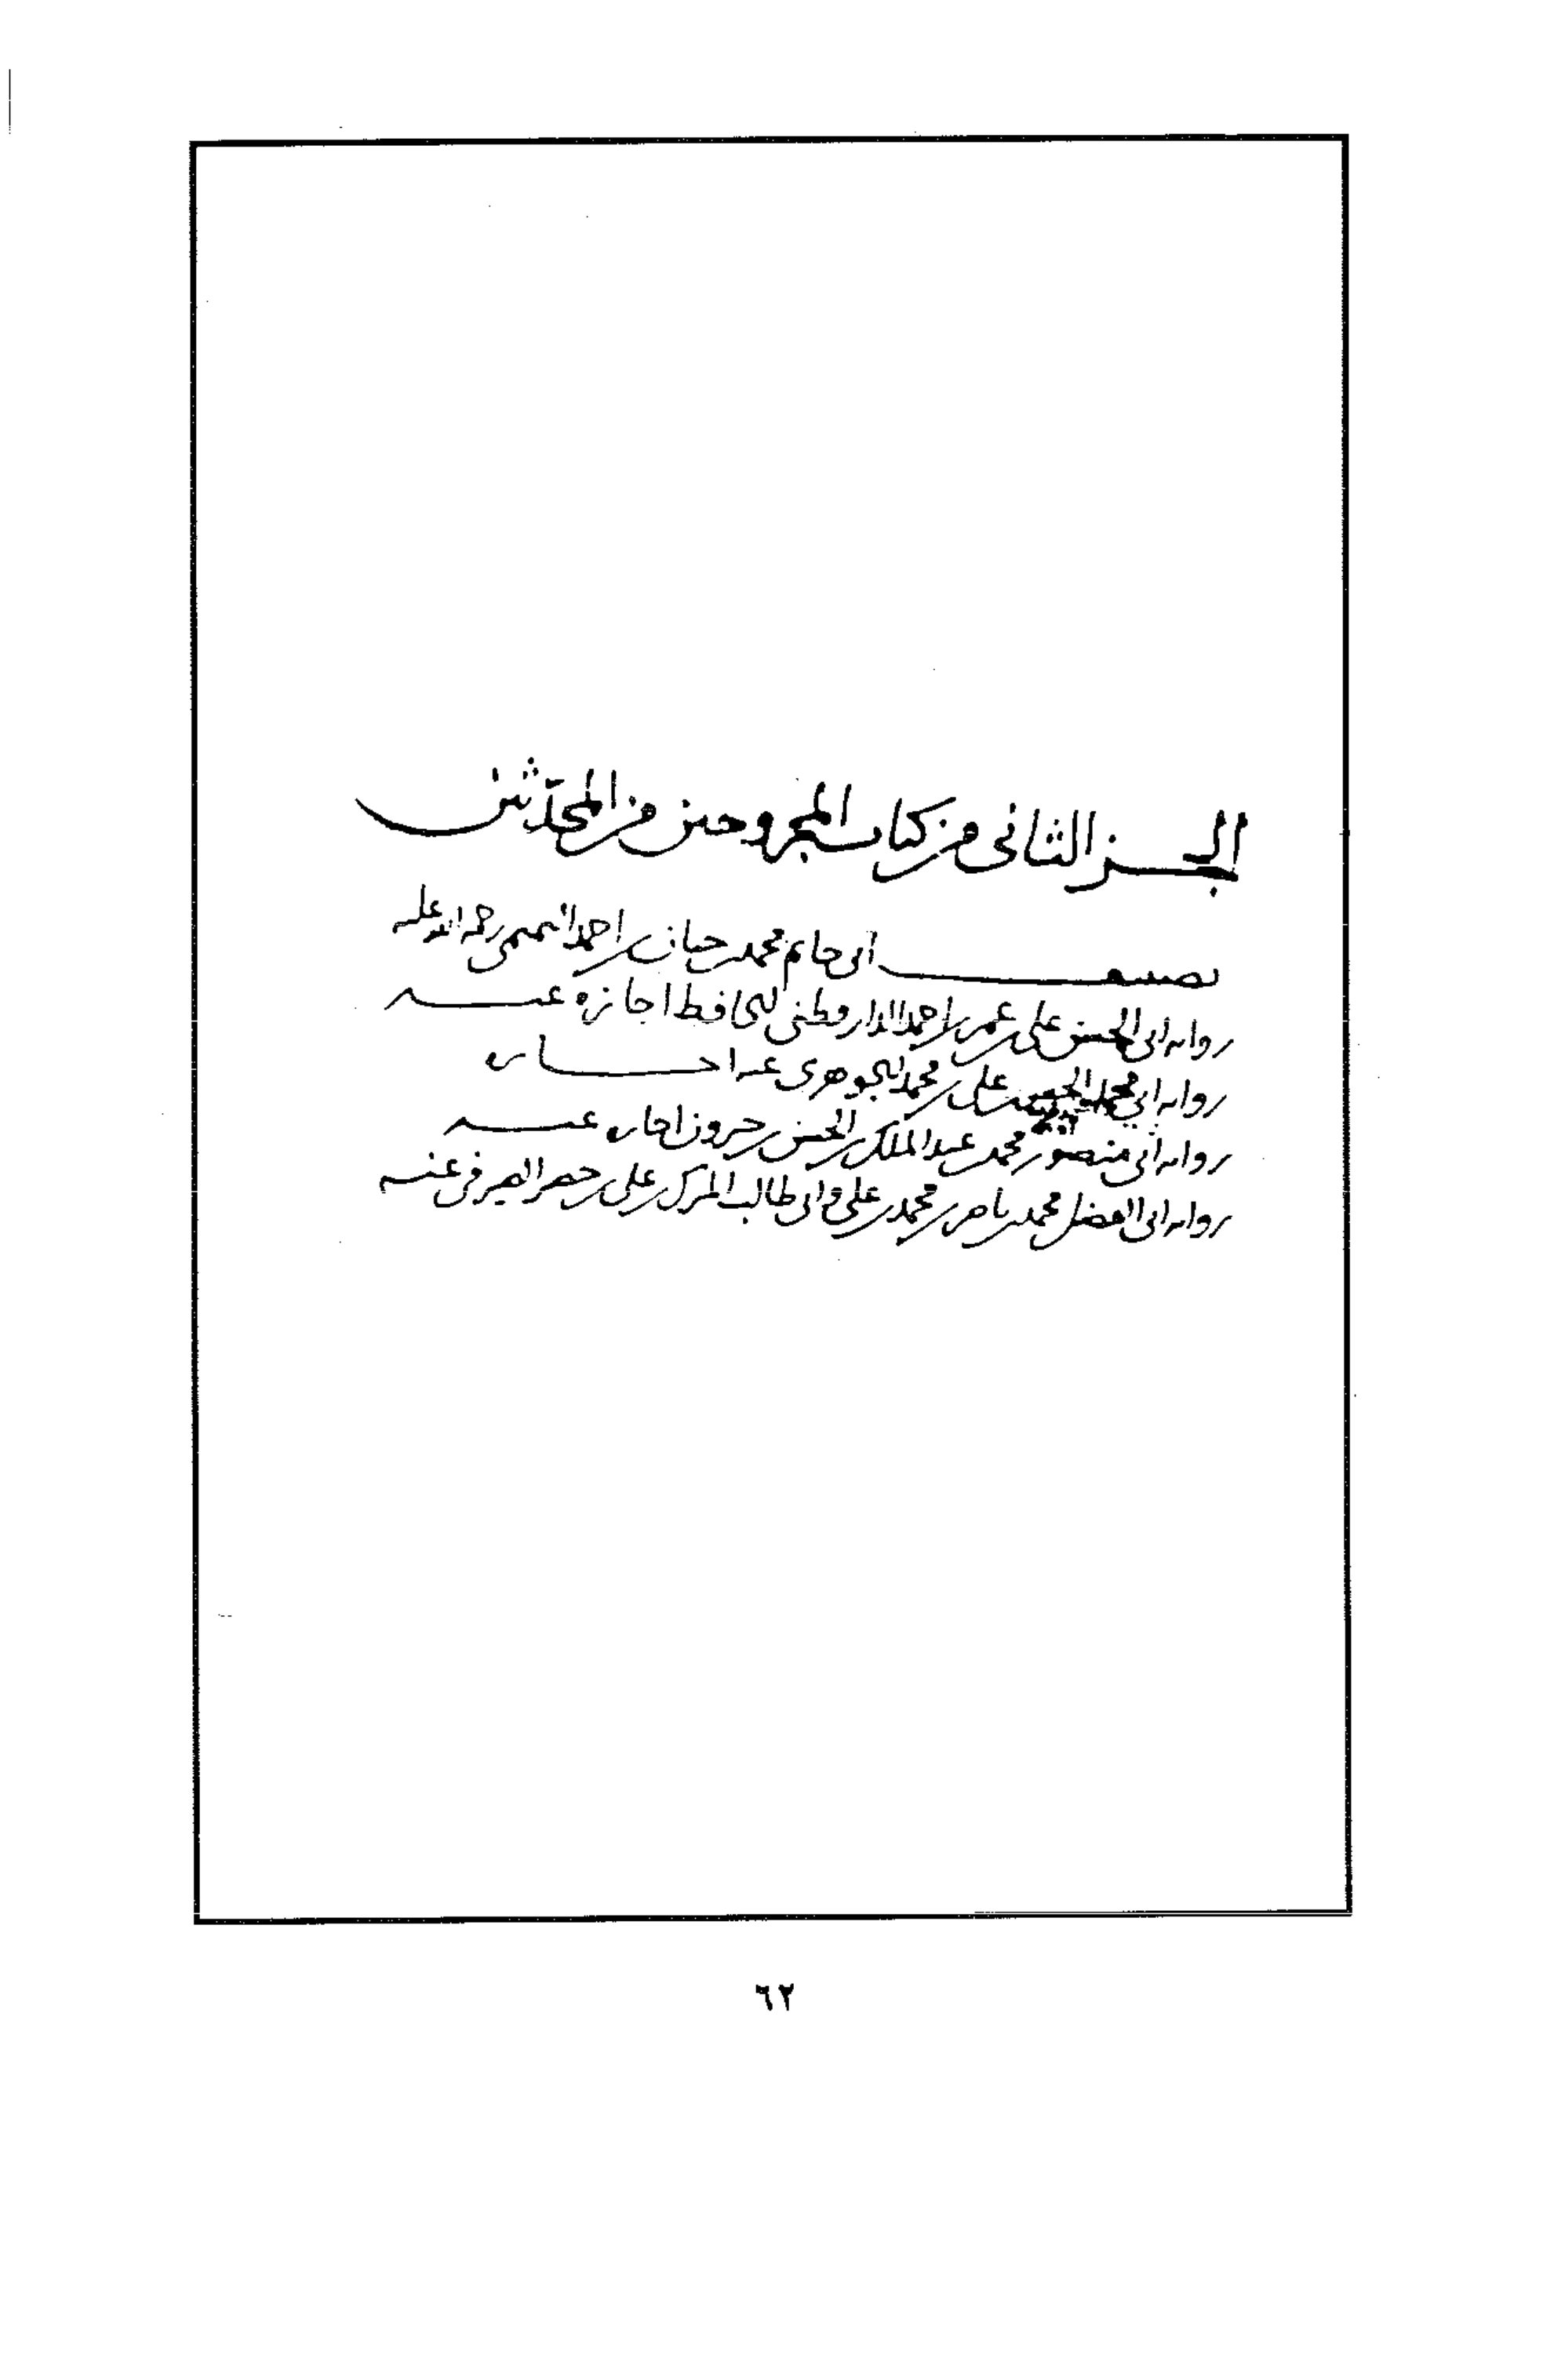 الجــز الثانى من كتاب المجروحين من المحدّثين
تصنيف ابى حاتم محمد بن حبان بن احمد التميمى رحمة الله عليه
روايه ابى الحسن على بن عمر بن احمد الدارقطنى الحافظ اجازه عنه
روايه ابي محمد الحسن بن على بن محمد الجوهرى عنه اجازه
روايه ابي منصور محمد بن عبد الملك بن الحسن بن خيرون اجازه عنه
روايه ابى الفضل محمد بن ناصر بن محمد بن على وابى طالب المبرك بن على بن خضر الصيرفى عنه
٦٢